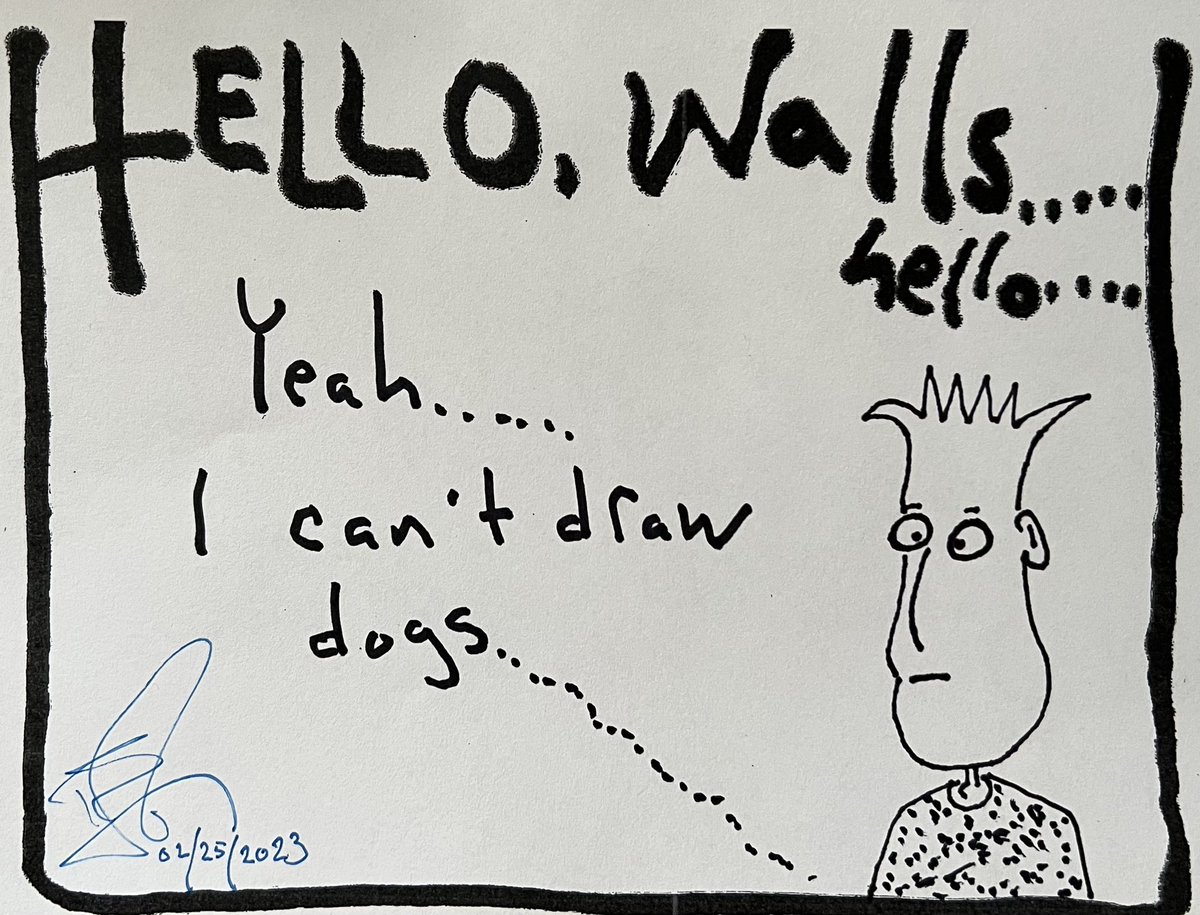 HELLO, Walls.....
hello.....
Yeah......
I can't draw
dogs........................
02/25/2023